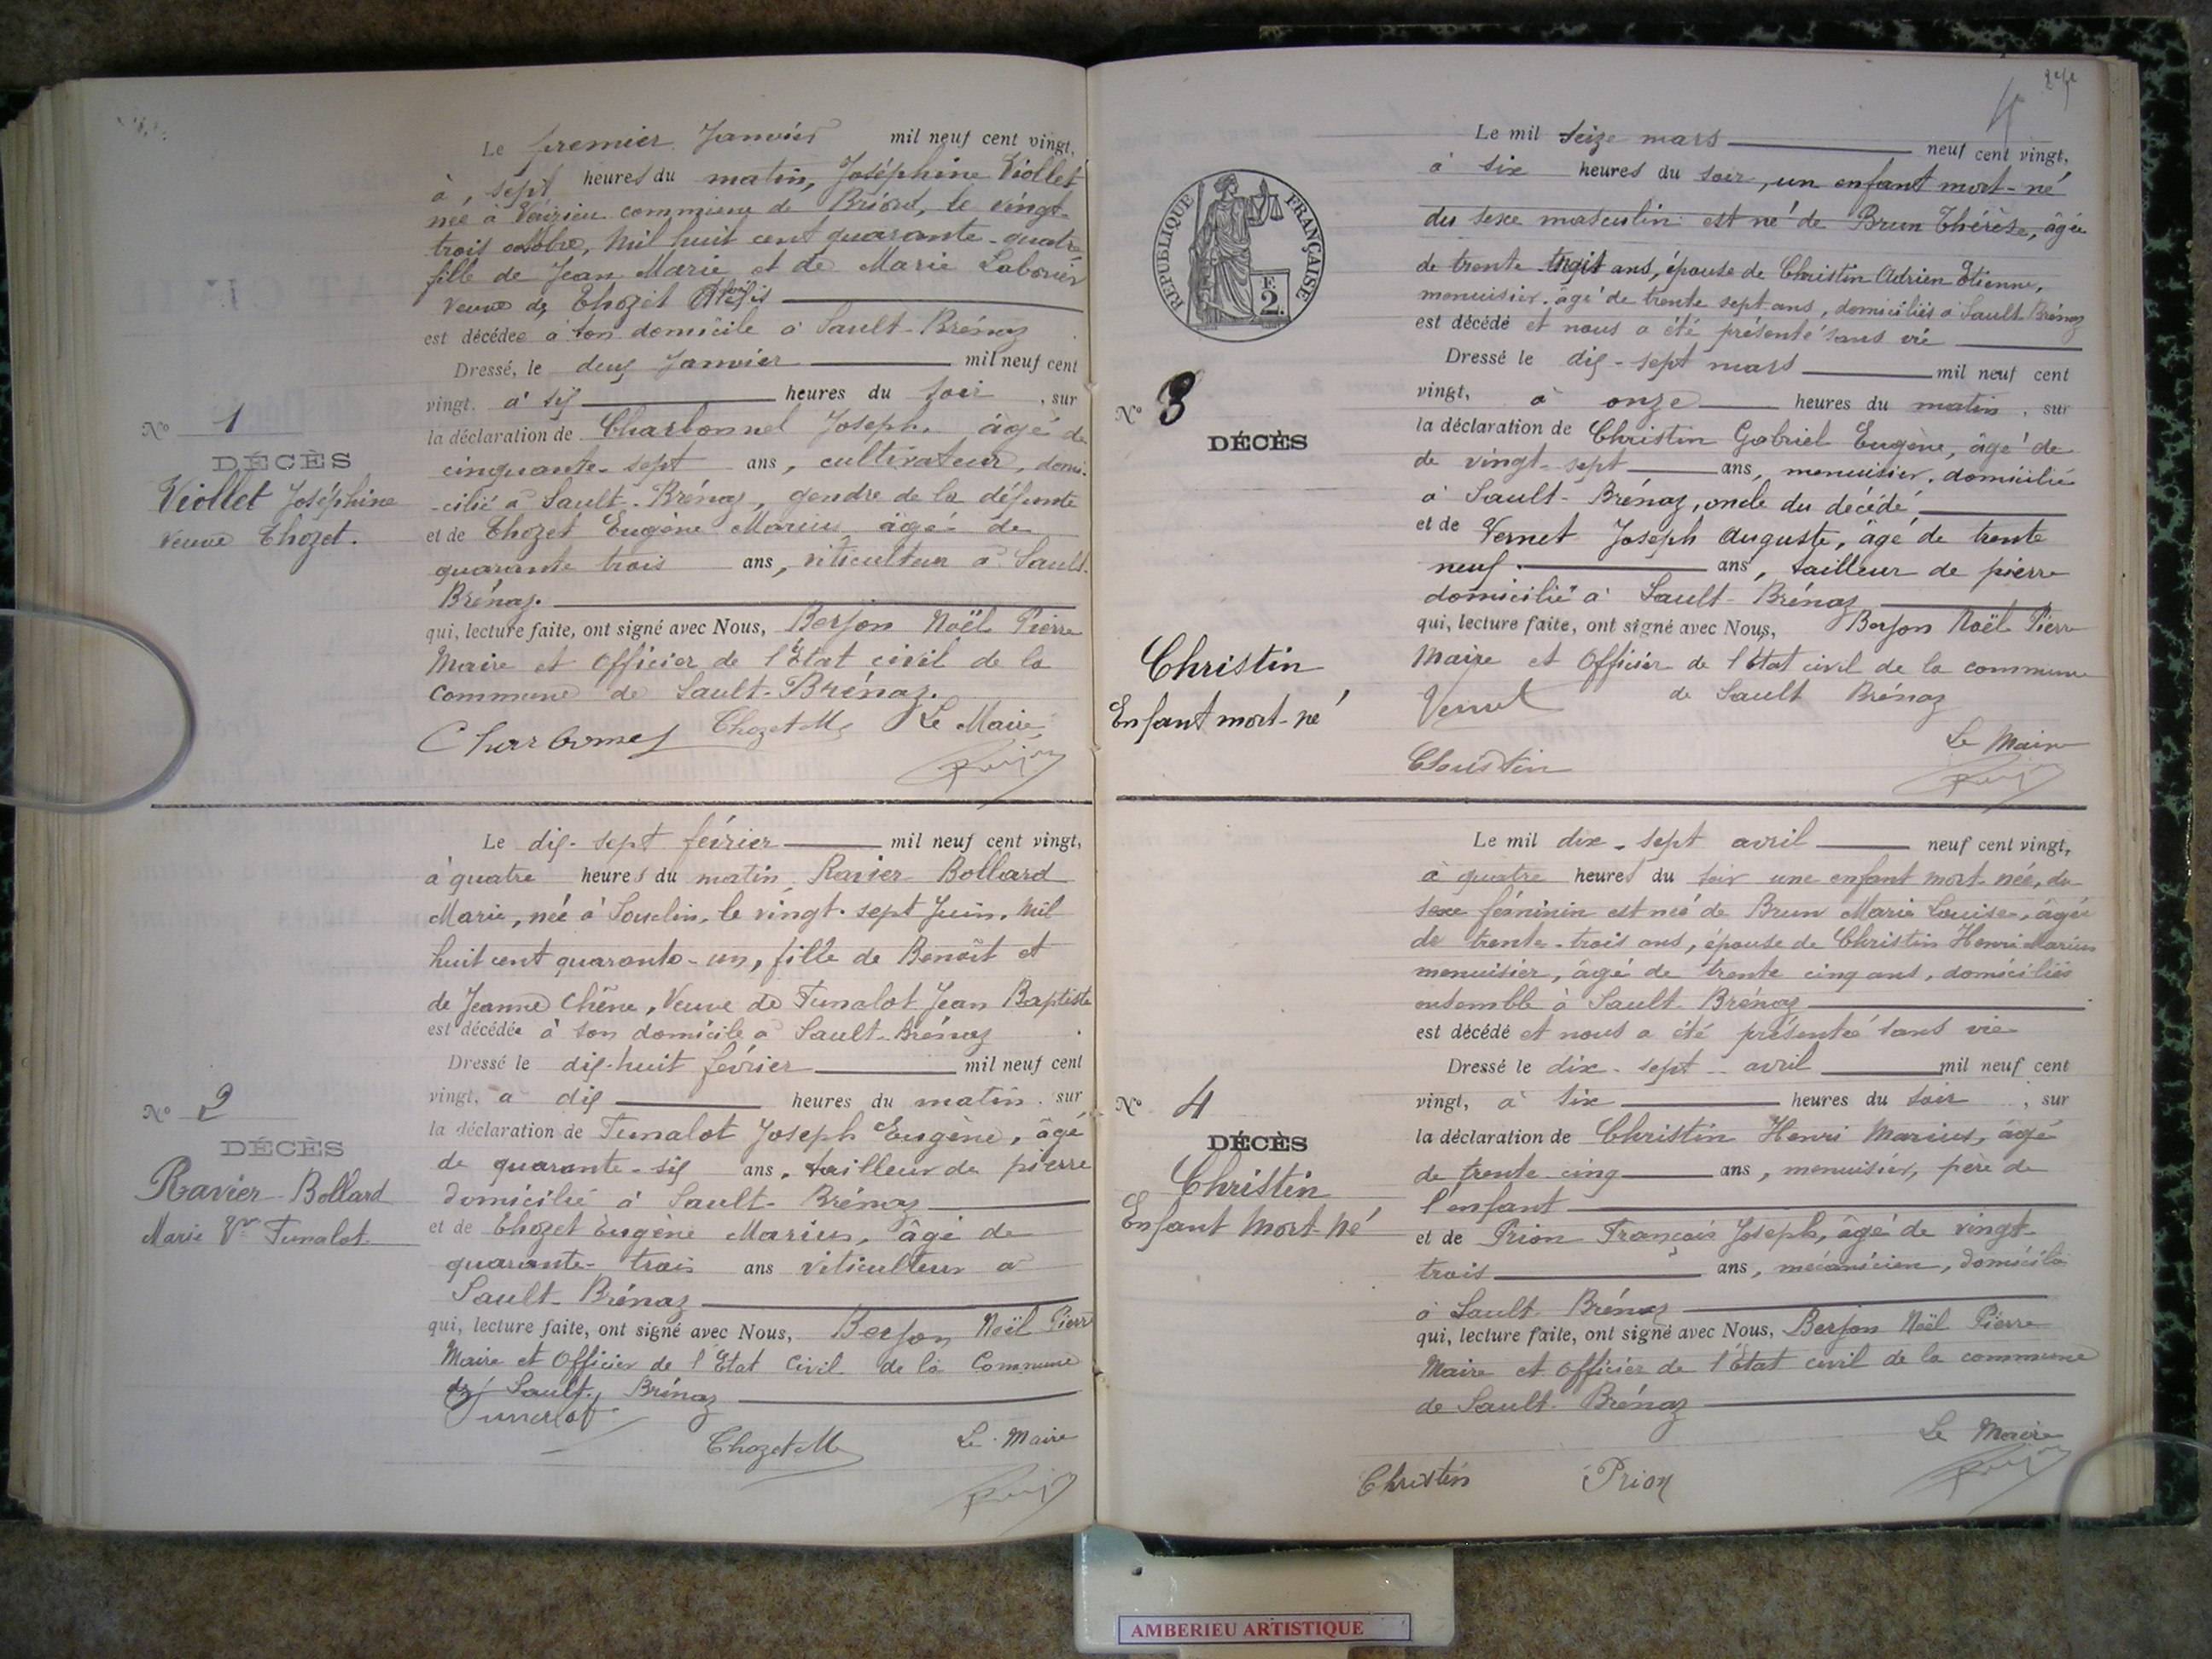 Le premier Janvier mil neuf cent vingt,
à, sept heures du matin, Joséphine Viollet,
née à Vérizieu commune de Briord, le vingt-
trois octobre, mil huit cent quarante-quatre
fille de Jean Marie et de Marie Laborier
veuve de Thozet
est décédée à son domicile à Sault-Brénaz
Dressé, le deux Janvier mil neuf cent
vingt, à six heures du soir, sur
la déclaration de Charbonnel Joseph. âgé de
cinquante-sept ans, cultivateur, domi-
-cilié à Sault-Brénaz, gendre de la défunte
et de Thozet Eugène Marius âgé de
quarante trois ans, viticulteur à Sault-
Brénaz.
qui, lecture faite, ont signé avec Nous, Berjon Noël Pierre
Maire et Officier de l'Etat civil de la
Commune de Sault-Brénaz.
Charbonnel Thozet M Le Maire
N° 1
DÉCÈS
Viollet Joséphine
veuve Thozet.
Le dix-sept février mil neuf cent vingt,
à quatre heures du matin Ravier-Bollard
Marie, née à Souclin, le vingt-sept Juin, mil
huit cent quarante-un, fille de Benoît et
de Jeanne Chêne, Veuve de Funalot Jean Baptiste
est décédée à son domicile à Sault-Brénaz
Dressé le dix-huit février mil neuf cent
vingt, à dix heures du matin, sur
la déclaration de Funalot Joseph Eugène, âgé
de quarante-six ans, tailleur de pierre
domicilié à Sault-Brénaz
et de Thozet Eugène Marius, âgé de
quarante-trois ans viticulteur à
Sault-Brénaz
qui, lecture faite, ont signé avec Nous, Berjon Noël Pierre
Maire et Officier de l'Etat Civil de la Commune
de Sault-Brénaz
Funalot
Thozet M Le Maire
N° 2
DÉCÈS
Ravier-Bollard
Marie Vve Funalot
Le mil seize mars neuf cent vingt,
à six heures du soir, un enfant mort-né
du sexe masculin est né de Brun Thérèse, âgée
de trente-trois ans, épouse de Christin Adrien Etienne,
menuisier, âgé de trente sept ans, domiciliés à Sault-Brénaz
est décédé et nous a été présenté sans vie
Dressé le dix-sept mars mil neuf cent
vingt, à onze heures du matin, sur
la déclaration de Christin Gabriel Eugène, âgé de
de vingt-sept ans, menuisier, domicilié
à Sault-Brénaz, oncle du décédé
et de Vernet Joseph Auguste, âgé de trente
neuf ans, tailleur de pierre
domicilié à Sault-Brénaz
qui, lecture faite, ont signé avec Nous, Berjon Noël Pierre
Maire et Officier de l'Etat civil de la commune
Vernet de Sault Brénaz
Le Maire
Christin
REPUBLIQUE FRANÇAISE
2
N° 3
DÉCÈS
Christin
Enfant mort-né
Le mil dix-sept avril neuf cent vingt,
à quatre heures du soir une enfant mort-née, du
sexe féminin est née de Brun Marie Louise, âgée
de trente-trois ans, épouse de Christin Henri Marius
menuisier, âgé de trente cinq ans, domiciliés
ensemble à Sault-Brénaz
est décédé et nous a été présentée sans vie
Dressé le dix-sept avril mil neuf cent
vingt, à six heures du soir, sur
la déclaration de Christin Henri Marius, âgé
de trente-cinq ans, menuisier, père de
l'enfant
et de Prion François Joseph, âgé de vingt-
trois ans, mécanicien, domicilié
à Sault-Brénaz
qui, lecture faite, ont signé avec Nous, Berjon Noël Pierre
Maire et Officier de l'Etat civil de la commune
de Sault-Brénaz
Le Maire
Christin Prion
N° 4
DÉCÈS
Christin
Enfant Mort-né
AMBERIEU ARTISTIQUE